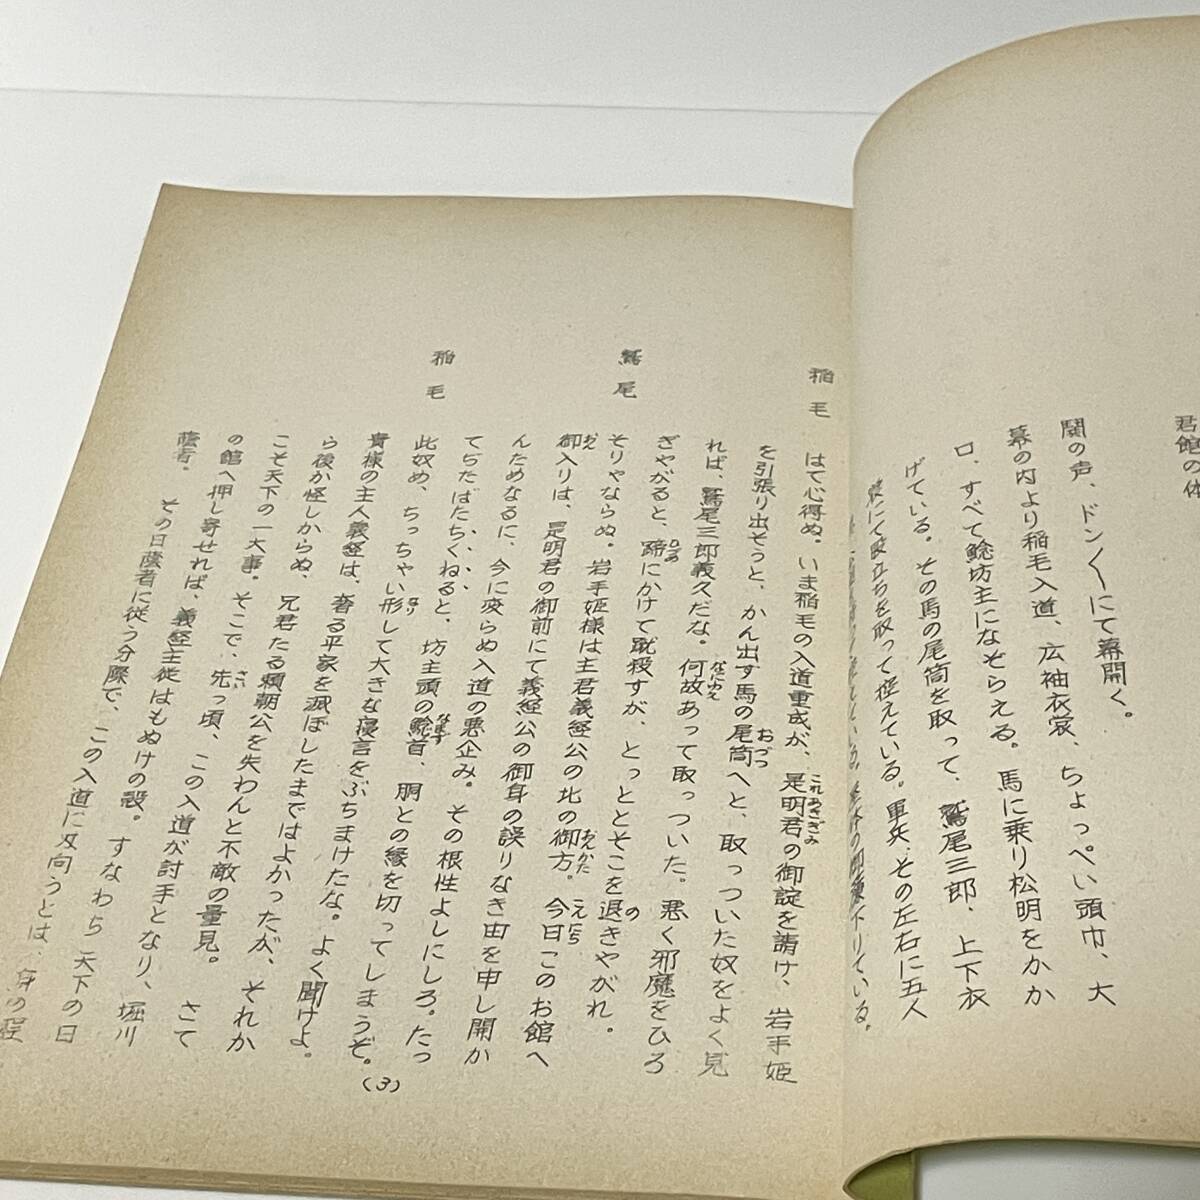 君館の体
鬨の声、ドン〱にて幕開く。
幕の内より稲毛入道、広袖衣裳、ちょっぺい頭巾、大
口、すべて鯰坊主になぞらえる。馬に乗り松明をかか
げている。その馬の尾筒を取って、鷲尾三郎、上下衣
裳にて股立ちを取って控えている。軍兵、その左右に五人
下りている。
稲毛
はて心得ぬ。いま稲毛の入道重成が、是明君の御諚を請け、岩手姫
これあきぎみ
を引張り出そうと、かん出す馬の尾筒へと、取っついた奴をよく見
おづつ
れば、鷲尾三郎義久だな。何故あって取っついた。悪く邪魔をひろ
なにゆえ
ぎやがると、蹄にかけて蹴殺すが、とっととそこを退きやがれ。
ひづめ
の
鷲尾
そりゃならぬ。岩手姫様は主君義経公の北の御方。今日このお館へ
おんかた
こんにち
御入りは、是明君の御前にて義経公の御身の誤りなき由を申し開か
おん
んためなるに、今に変らぬ入道の悪企み。その根性よしにしろ。たっ
てぢたばたちくねると、坊主頭の鯰首、胴との縁を切ってしまうぞ。
なまず
稲毛
此奴め、ちっちゃい形して大きな寝言をぶちまけたな。よく聞けよ。
なり
貴様の主人義経は、奢る平家を滅ぼしたまではよかったが、それか
ら後か怪しからぬ、兄君たる頼朝公を失わんと不敵の量見。さて
こそ天下の一大事。そこで、先っ頃、この入道が討手となり、堀川
さい
の館へ押し寄せれば、義経主従はもぬけの殻。すなわち天下の日
蔭者。その日蔭者に従う分際で、この入道に刃向うとは、身の程
(3)